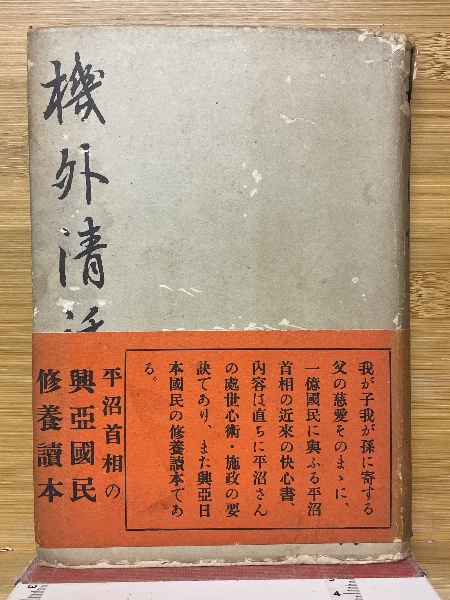 機外清話
我が子我が孫に寄する
父の慈愛そのまゝに、
一億國民に與ふる平沼
首相の近來の快心書、
内容は直ちに平沼さん
の處世心術・施政の要
訣であり、また興亞日
本國民の修養讀本であ
る。
平沼首相の
興亞國民
修養讀本